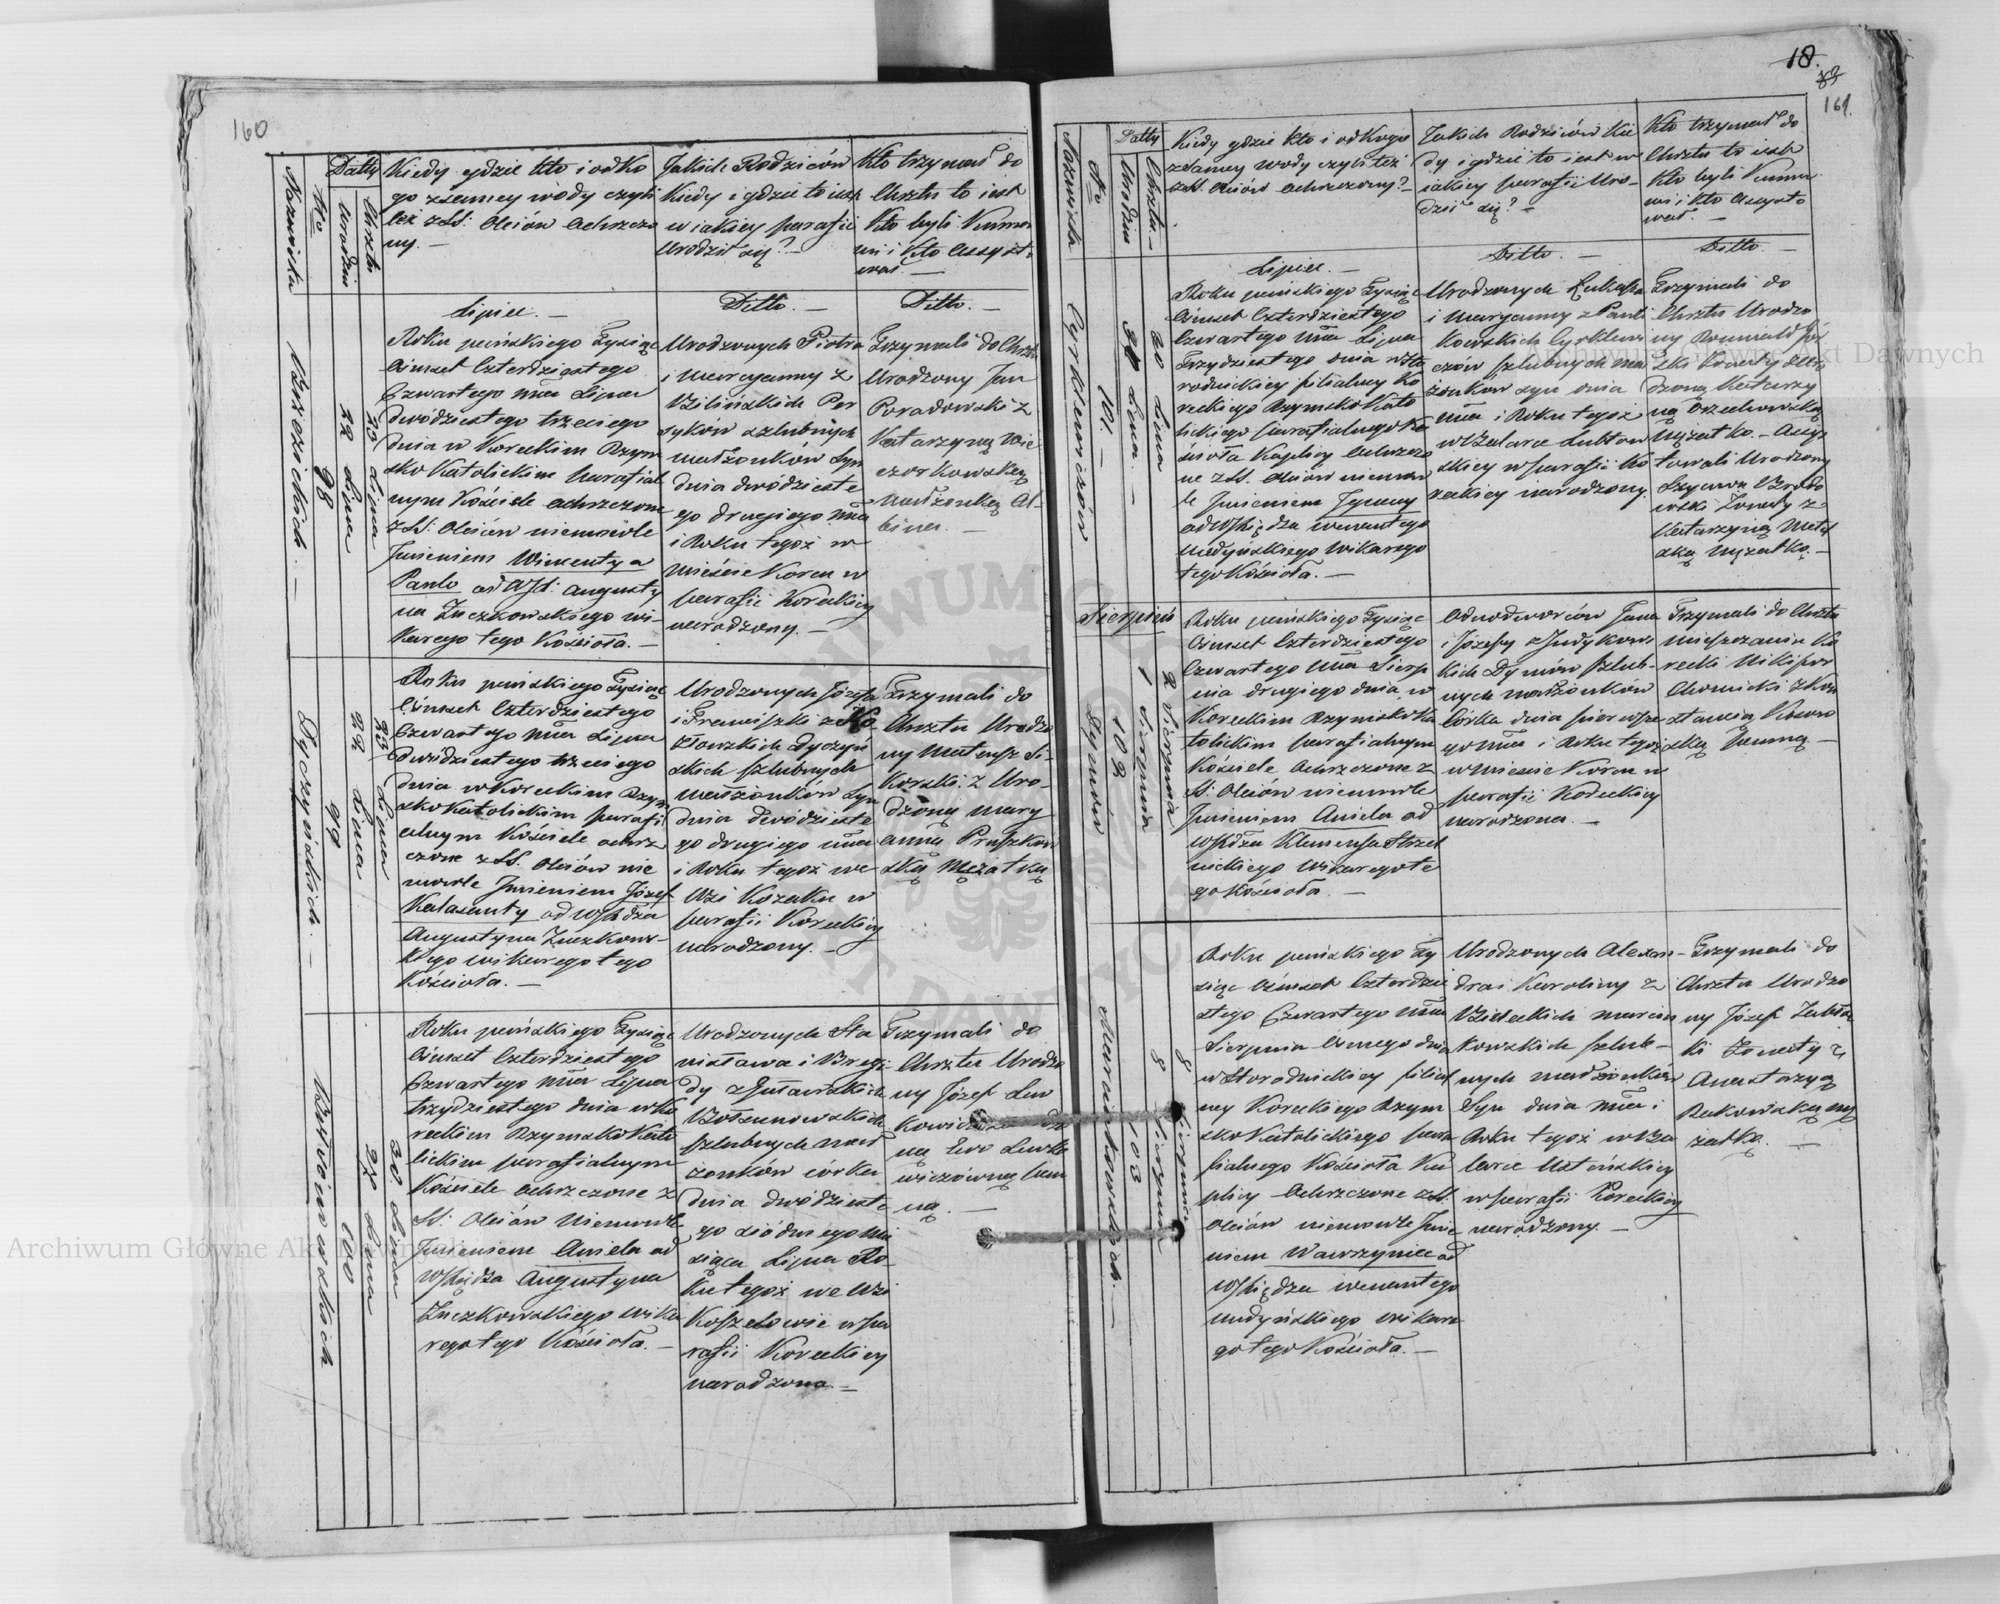 160
Nazwiska
Nro
Datty
Urodzin
Chrztu
Kiedy gdzie kto i od ko
go z samey wody czyli
też z SS: Oleiów ochrzczo
ny. —
Jakich Rodziców
Kiedy i gdzie to iest
w iakiey parafii
urodził się? —
Kto trzymał do
Chrztu to iest
Kto byli Kumo
mi i Kto assysto
wał —
Lipiec. —
Ditto. —
Ditto. —
98
22 Lipca
23 Lipca
Roku pańskiego Tysiąc
Ośmset Czterdziestego
Czwartego mca Lipca
dwódziestego trzeciego
dnia w Koreckim Rzym
sko Katolickim Parafial
nym Kościele ochrzczone
z SS: Oleiów niemowle
Jmieniem Wincenty a
Paulo od WJX: Augusty
na Zuczkowskiego wi-
karego tego Kościoła. —
Urodzonych Piotra
i Maryanny z
Bilińskich
szlubnych
małżonków Syn
dnia dwódzieste
go drugiego mca
i Roku tegoż w
mieście Korcu w
parafii Koreckiey
narodzony. —
Trzymali do Chrztu
Urodzony Jan
Poradowski z
Katarzyną Wie
czorkowską
małżonką Al-
bina. —
Dyczyńskich. —
99
22 Lipca
23 Lipca
Roku pańskiego Tysiąc
Ośmset Czterdziestego
Czwartego mca Lipca
dwódziestego trzeciego
dnia w Koreckim Rzym
sko Katolickim parafi
alnym Kościele ochrz
czone z SS. Oleiów nie
mowle Jmieniem Józef
Kalasanty od WXiędza
Augustyna Zuczkows-
kiego wikarego tego
Kościoła. —
Urodzonych Józefa
i Franciszki z Ko-
złowskich Dyczyń
skich szlubnych
małżonków Syn
dnia dwódzieste
go drugiego mca
i Roku tegoż we
Wsi Kozaku w
parafii Koreckiey
narodzony. —
Trzymali do
Chrztu Urodzo
ny Mateusz Si-
korski z Uro-
dzoną Mary
anną Pruszkow
ską Mężatką
100
27 Lipca
30 Lipca
Roku pańskiego Tysiąc
Ośmset Czterdziestego
Czwartego mca Lipca
trzydziestego dnia w Ko
reckim Rzymsko Kato
lickim parafialnym
Kościele ochrzczone z
SS: Oleiów niemowle
Jmieniem Aniela od
WXiędza Augustyna
Zuczkowskiego wika
rego tego Kościoła. —
Urodzonych Sta
nisława i Brygi
dy
szlubnych mał
żonków córka
dnia dwódzieste
go siódmego mi
siąca Lipca Ro-
ku tegoż we Wsi
Koszelowie w pa
rafii Koreckiey
narodzona. —
Trzymali do
Chrztu Urodzo
ny Józef Lew
kowicz
ną Ewą Lewko
wiczówną pan
ną. —
18.
161.
Nazwiska
Nro
Datty
Urodzin
Chrztu. —
Kiedy gdzie kto i od kogo
z samey wody czyli też
z SS. Oleiów ochrzczony? —
Jakich Rodziców Kie
dy i gdzie to iest w
iakiey parafii Uro-
dził się? —
Kto trzymał do
Chrztu to iest
Kto byli Kumo
mi i kto assysto
wał —
Lipiec. —
Ditto. —
Ditto. —
101. —
30 Lipca
Roku pańskiego Tysiąc
Ośmset Czterdziestego
Czwartego mca Lipca
Trzydziestego dnia w Sto
rodnickiey filialney Ko
reckiego Rzymsko Kato
lickiego parafialnego Ko
ścioła Kaplicy ochrzczo
ne z SS. Oleiów niemow
le Jmieniem Jgnacy
od WXiędza Wenantego
Medyńskiego Wikarego
tego Kościoła. —
Urodzonych Łukasza
i Maryanny z Pauli
kowskich Cyrklewi
czów szlubnych mał
żonków syn dnia
mca i Roku tegoż
w Futorze Lubtow
skiey w parafii Ko
reckiey narodzony.
Trzymali do
Chrztu Urodzo
ny Romuald Gór
ski żonaty z Uro
dzoną Katarzy
ną Orzechowską
Mężatką. — Assys
towali Urodzony
Szymon
żonaty z
Katarzyną
ską Mężatką. —
Sierpień
Dymów
102
1 Sierpnia
2 Sierpnia
Roku pańskiego Tysiąc
Ośmset Czterdziestego
Czwartego mca Sierp
nia drugiego dnia w
Koreckim Rzymsko Ka
tolickim parafialnym
Kościele ochrzczone z
SS: Oleiów niemowle
Jmieniem Aniela od
WXiędza Klemensa Strzel
nickiego wikarego te
go Kościoła. —
Odnodworców Jana
i Józefy z Judykows
kich Dymów szlub-
nych małżonków
Córka dnia pierwsze
go mca i Roku tegoż
w mieście Korcu w
parafii Koreckiey
narodzona. —
Trzymali do Chrztu
mieszczanin Ko
recki Nikifor
Chomicki z Kon
stancią
ską panną —
Marcinkowskich. —
103
8 Sierpnia
8 Sierpnia
Roku pańskiego Ty
siąc Ośmset Czterdzie
stego Czwartego mca
Sierpnia ósmego dnia
w Storodnickiey filial
ney Koreckiego Rzym
sko Katolickiego para
fialnego Kościoła Ka
plicy ochrzczone z SS.
Oleiów niemowle Jmie
niem Wawrzyniec od
WXiędza Wenantego
Medyńskiego wikare
go tego Kościoła. —
Urodzonych Alexan-
dra i Karoliny z
Bileckich Marcin
kowskich szlub-
nych małżonków
Syn dnia mca i
Roku tegoż w Fu
torze Usteńskiey
w parafii Koreckiey
narodzony. —
Trzymali do
Chrztu Urodzo
ny Józef
ki żonaty z
Anastazyą
Rakowską mę
żatką. —
Archiwum Główne Akt Dawnych
Archiwum Główne Akt Dawnych